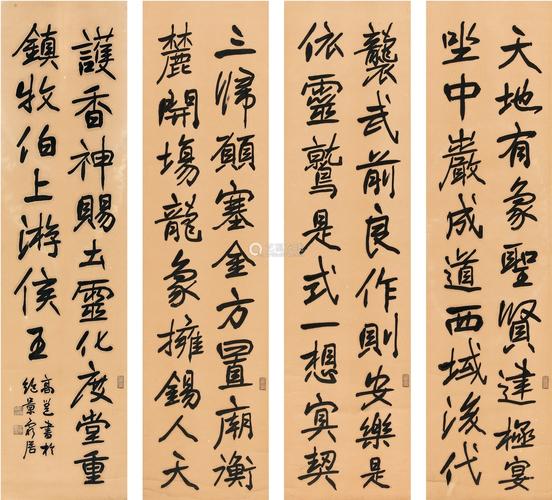 天地有象聖賢建極宴
坐中巖成道西域後代
襲武前良作則安樂是
依靈鷲是式一想冥契
三歸願塞金方置廟衡
麓開場龍象擁錫人天
護香神賜土靈化度堂重
鎮牧伯上游侯王
高邕書於
絕景窮居